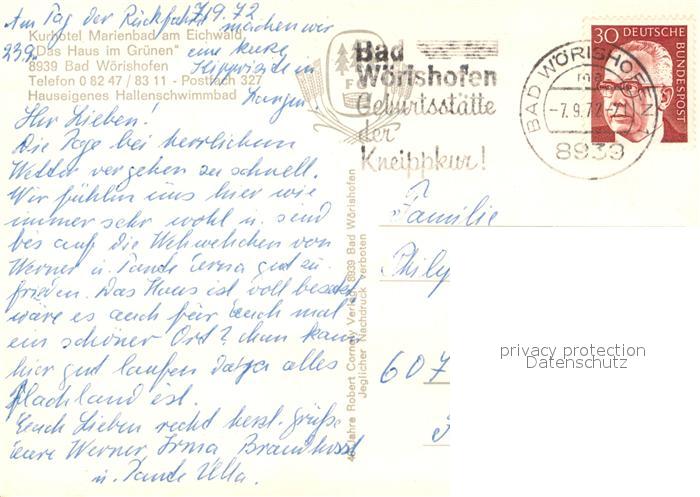 Am Tag der Rückfahrt 7/9.72
23.9. machen wir
eine kurze
in
Langen.
Kurhotel Marienbad am Eichwald
"Das Haus im Grünen"
8939 Bad Wörishofen
Telefon 0 82 47 / 83 11 - Postfach 327
Hauseigenes Hallenschwimmbad
Ihr Lieben!
Die Tage bei herrlichem
Wetter vergehen zu schnell.
Wir fühlen uns hier wie
immer sehr wohl u. sind
bis auf die Wehwehchen von
Werner u. Tante Erna gut zu
frieden. Das Haus ist voll besetzt
wäre es auch für Euch mal
ein schöner Ort? Man kann
hier gut laufen da ja alles
Flachland ist.
Euch Lieben recht herzl. Grüße
Eure Werner, Irma
u. Tante Ella.
Jahre Robert Cornely Verlag, 8939 Bad Wörishofen
Jeglicher Nachdruck verboten
Bad
Wörishofen
Geburtsstätte
der
Kneippkur!
BAD WÖRISHOFEN
-7.9.72-
8939
30 DEUTSCHE
BUNDESPOST
Familie
Phily
607
privacy protection
Datenschutz